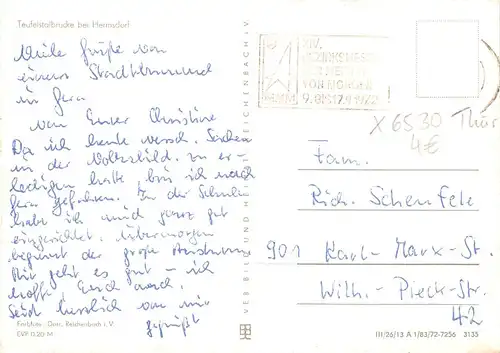 Teufelstalbrücke bei Hermsdorf
Viele Grüße von
einem Stadtbummel
in Gera
von Eurer Christine
Da ich heute versch. Sachen
in der Volksbild. zu er-
ledigen hatte bin ich nach
Gera gefahren. In der Schule
habe ich mich ganz gut
eingerichtet. Übermorgen
beginnt der große
Mir geht es gut – ich
hoffe, Euch auch.
Seid herzlich von mir
gegrüßt
Farbfoto: Darr, Reichenbach i. V.
EVP 0,20 M
VERLAG UND REICHENBACH i. V.
XIV.
BEZIRKSMESSE
DER MEISTER
VON MORGEN
9. BIS 17.9.1972
MMM
X 6530 Thür
4€
Fam.
Rich. Schenfele
901 Karl-Marx-St.
Wilh.-Pieck-Str.
42
III/26/13 A 1/83/72-7256 3135